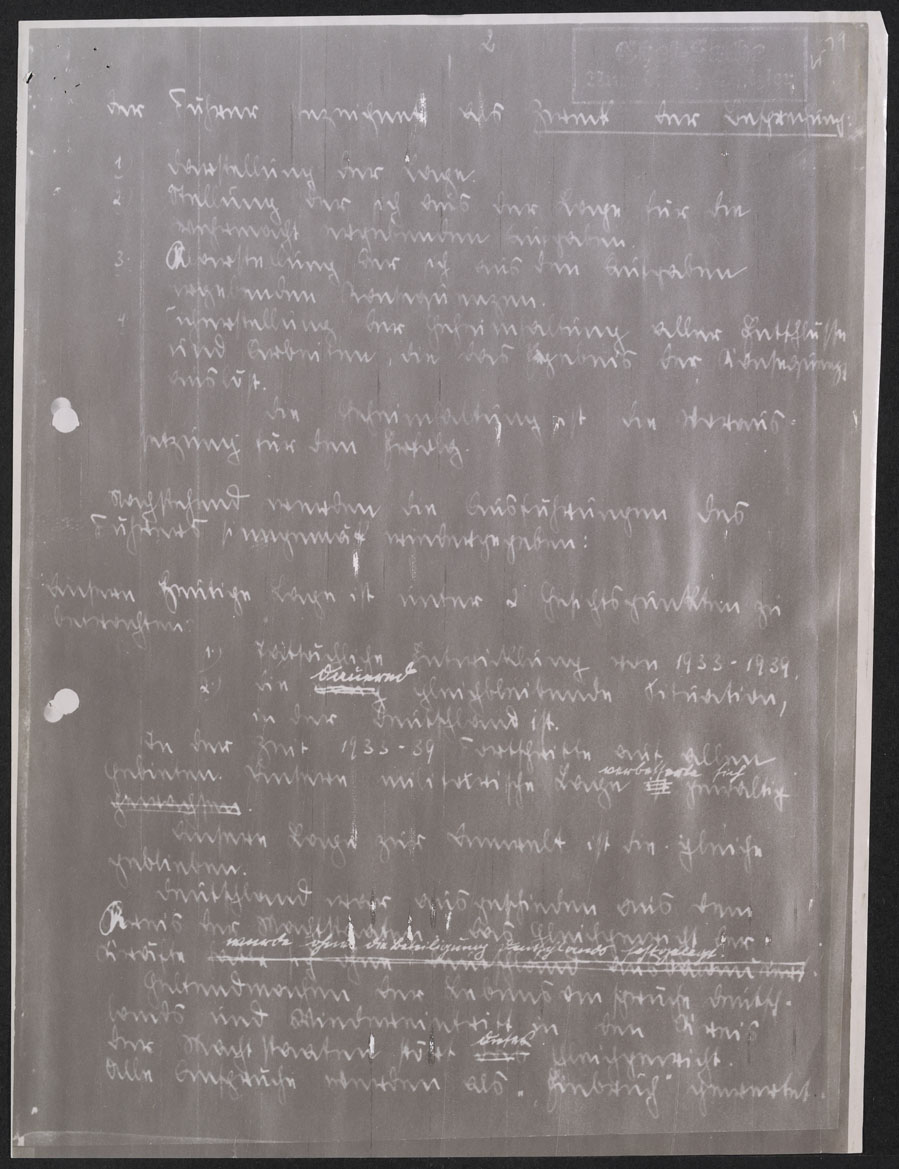 2
Der Führer bezeichnet als Zweck der Besprechung:
1 Darstellung der Lage.
2 Stellung der sich aus der Lage für die
Wehrmacht ergebenden Aufgaben.
3. Klarstellung der sich aus den Aufgaben
ergebenden Konsequenzen.
4 Sicherstellung der Geheimhaltung aller Entschlüsse
und Arbeiten, die das Ergebnis der Konsequenz
auslöst.
Die Geheimhaltung ist die Voraus-
setzung für den Erfolg.
Nachstehend werden die Ausführungen des
Führers sinngemäß wiedergegeben:
Unsere heutige Lage ist unter 2 Gesichtspunkten zu
betrachten:
1.) Tatsächliche Entwicklung von 1933-1939.
dauernd
2.) die gleichbleibende Situation,
in der Deutschland ist.
In der Zeit 1933-39 Fortschritte auf allen
verbesserte sich
Gebieten. Unsere militärische Lage gewaltig
.
Unsere Lage zur Umwelt ist die gleiche
geblieben.
Deutschland war ausgeschieden aus dem
Kreis der Machtstaaten. Das Gleichgewicht der
wurde ohne die Beteiligung Deutschlands festgelegt.
Kräfte
Geltendmachen der Lebensansprüche Deutsch-
lands und Wiedereintritt in den Kreis
dieses
der Machtstaaten stört Gleichgewicht.
Alle Ansprüche werden als "Einbruch" gewertet.